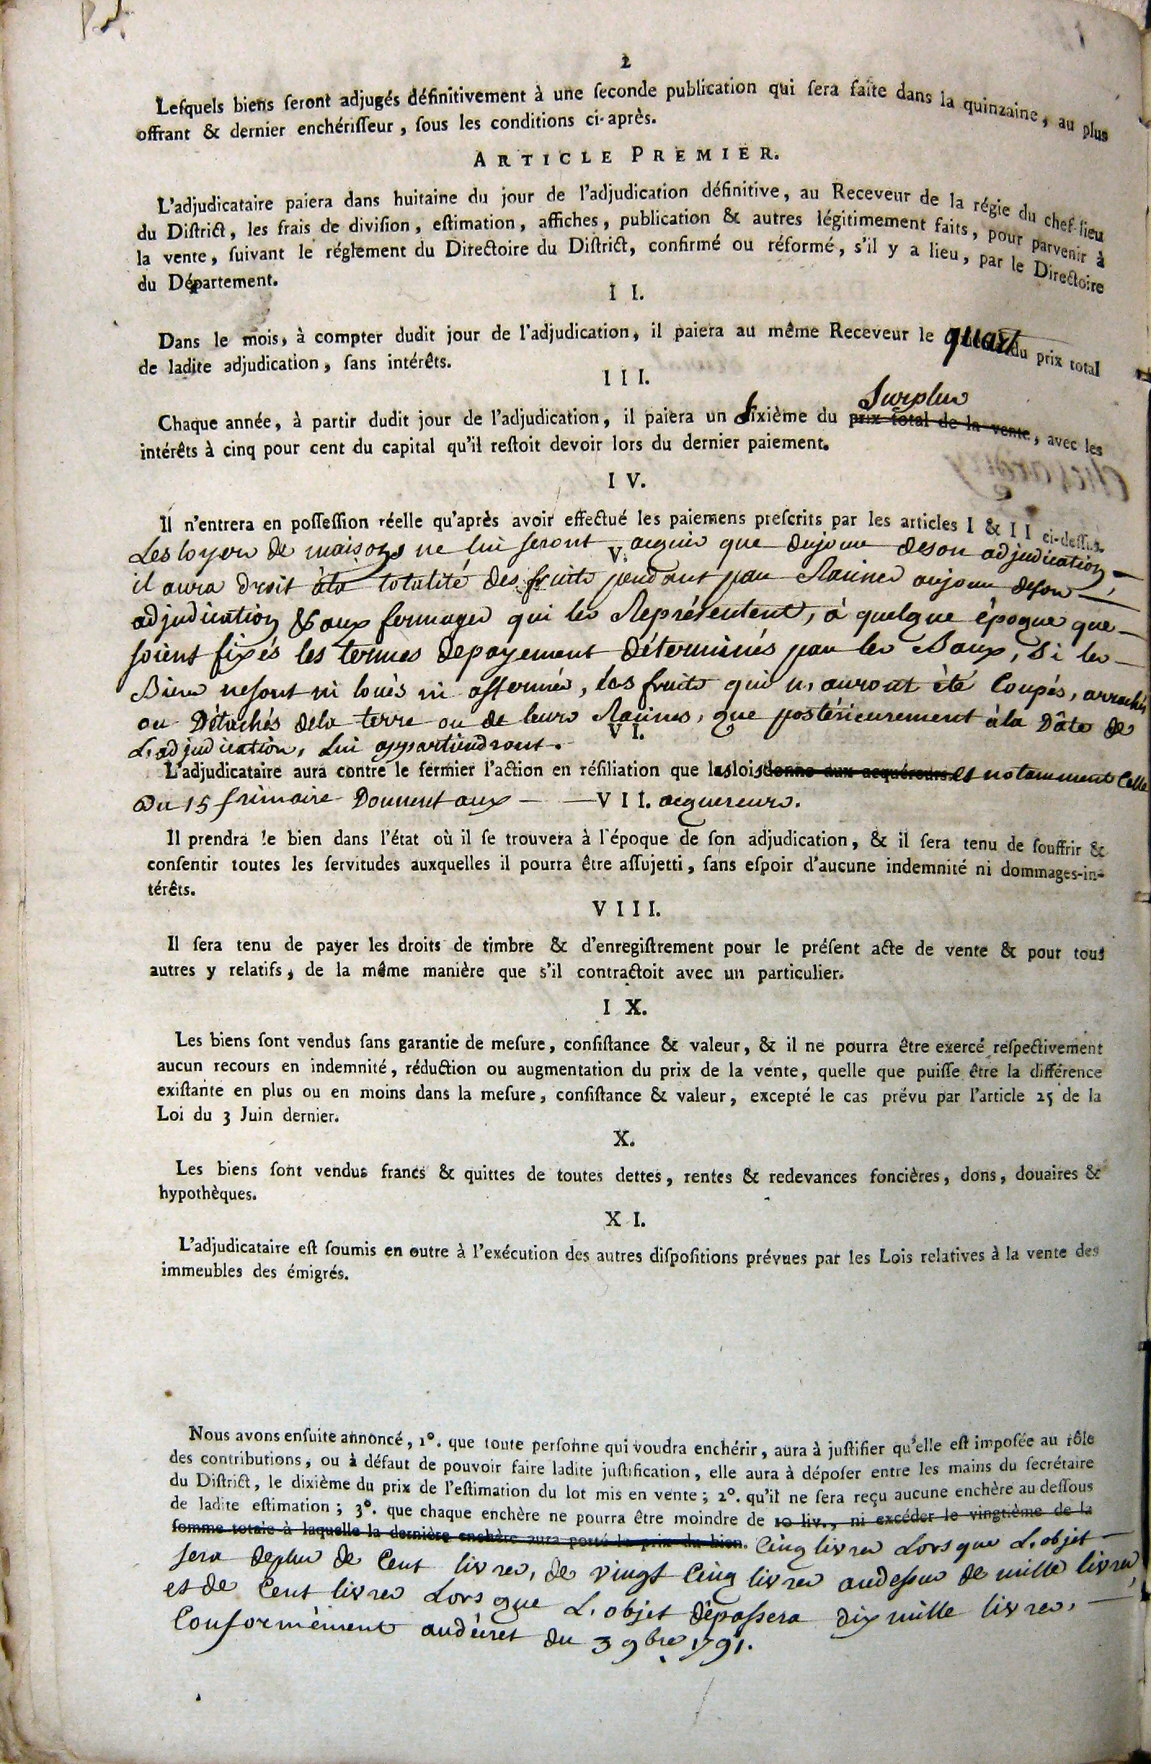 2
Lesquels biens seront adjugés définitivement à une seconde publication qui sera faite dans la quinzaine, au plus
offrant & dernier enchérisseur, sous les conditions ci-après.
ARTICLE PREMIER.
L'adjudicataire paiera dans huitaine du jour de l'adjudication définitive, au Receveur de la régie du chef-lieu
du District, les frais de division, estimation, affiches, publication & autres légitimement faits, pour parvenir à
la vente, suivant le réglement du Directoire du District, confirmé ou réformé, s'il y a lieu, par le Directoire
du Département.
II.
Dans le mois, à compter dudit jour de l'adjudication, il paiera au même Receveur le quart du prix total
de ladite adjudication, sans intérêts.
III.
Surplus
Chaque année, à partir dudit jour de l'adjudication, il paiera un sixième du prix total de la vente, avec les
intérêts à cinq pour cent du capital qu'il restoit devoir lors du dernier paiement.
IV.
Il n'entrera en possession réelle qu'après avoir effectué les paiemens prescrits par les articles I & II ci-dessus.
Les loyers de maisons ne lui seront acquis que du jour de son adjudication,
V.
il aura droit à la totalité des fruits pendant par Racines au jour de son
adjudication & aux fermages qui les Représentent, à quelque époque que
soient fixés les termes de payement déterminés par les Baux, Si les
Biens ne sont ni loués ni affermés, les fruits qui n'auront été Coupés, arrachés
ou Détachés de la terre ou de leurs Racines, que postérieurement à la Date de
VI.
L'adjudication, Lui appartiendront.
L'adjudicataire aura contre le fermier l'action en résiliation que les lois donne aux acquéreurs. et notamment Celle
du 15 frimaire Donnent aux — — VII. acquereurs.
Il prendra le bien dans l'état où il se trouvera à l'époque de son adjudication, & il sera tenu de souffrir &
consentir toutes les servitudes auxquelles il pourra être assujetti, sans espoir d'aucune indemnité ni dommages-in-
térêts.
VIII.
Il sera tenu de payer les droits de timbre & d'enregistrement pour le présent acte de vente & pour tous
autres y relatifs, de la même manière que s'il contractoit avec un particulier.
IX.
Les biens sont vendus sans garantie de mesure, consistance & valeur, & il ne pourra être exercé respectivement
aucun recours en indemnité, réduction ou augmentation du prix de la vente, quelle que puisse être la différence
existante en plus ou en moins dans la mesure, consistance & valeur, excepté le cas prévu par l'article 25 de la
Loi du 3 Juin dernier.
X.
Les biens sont vendus francs & quittes de toutes dettes, rentes & redevances foncières, dons, douaires &
hypothèques.
XI.
L'adjudicataire est soumis en outre à l'exécution des autres dispositions prévues par les Lois relatives à la vente des
immeubles des émigrés.
Nous avons ensuite annoncé, 1°. que toute personne qui voudra enchérir, aura à justifier qu'elle est imposée au rôle
des contributions, ou à défaut de pouvoir faire ladite justification, elle aura à déposer entre les mains du secrétaire
du District, le dixième du prix de l'estimation du lot mis en vente; 2°. qu'il ne sera reçu aucune enchère au dessous
de ladite estimation; 3°. que chaque enchère ne pourra être moindre de 10 liv., ni excéder le vingtième de la
somme totale à laquelle la dernière enchère aura porté le prix du bien. Cinq livres Lorsque L'objet
sera de plus de Cent livres, de vingt Cinq livres audessus de mille livres,
et de Cent livres Lorsque L'objet dépassera dix mille livres,
Conformément au décret du 3 9bre 1791.